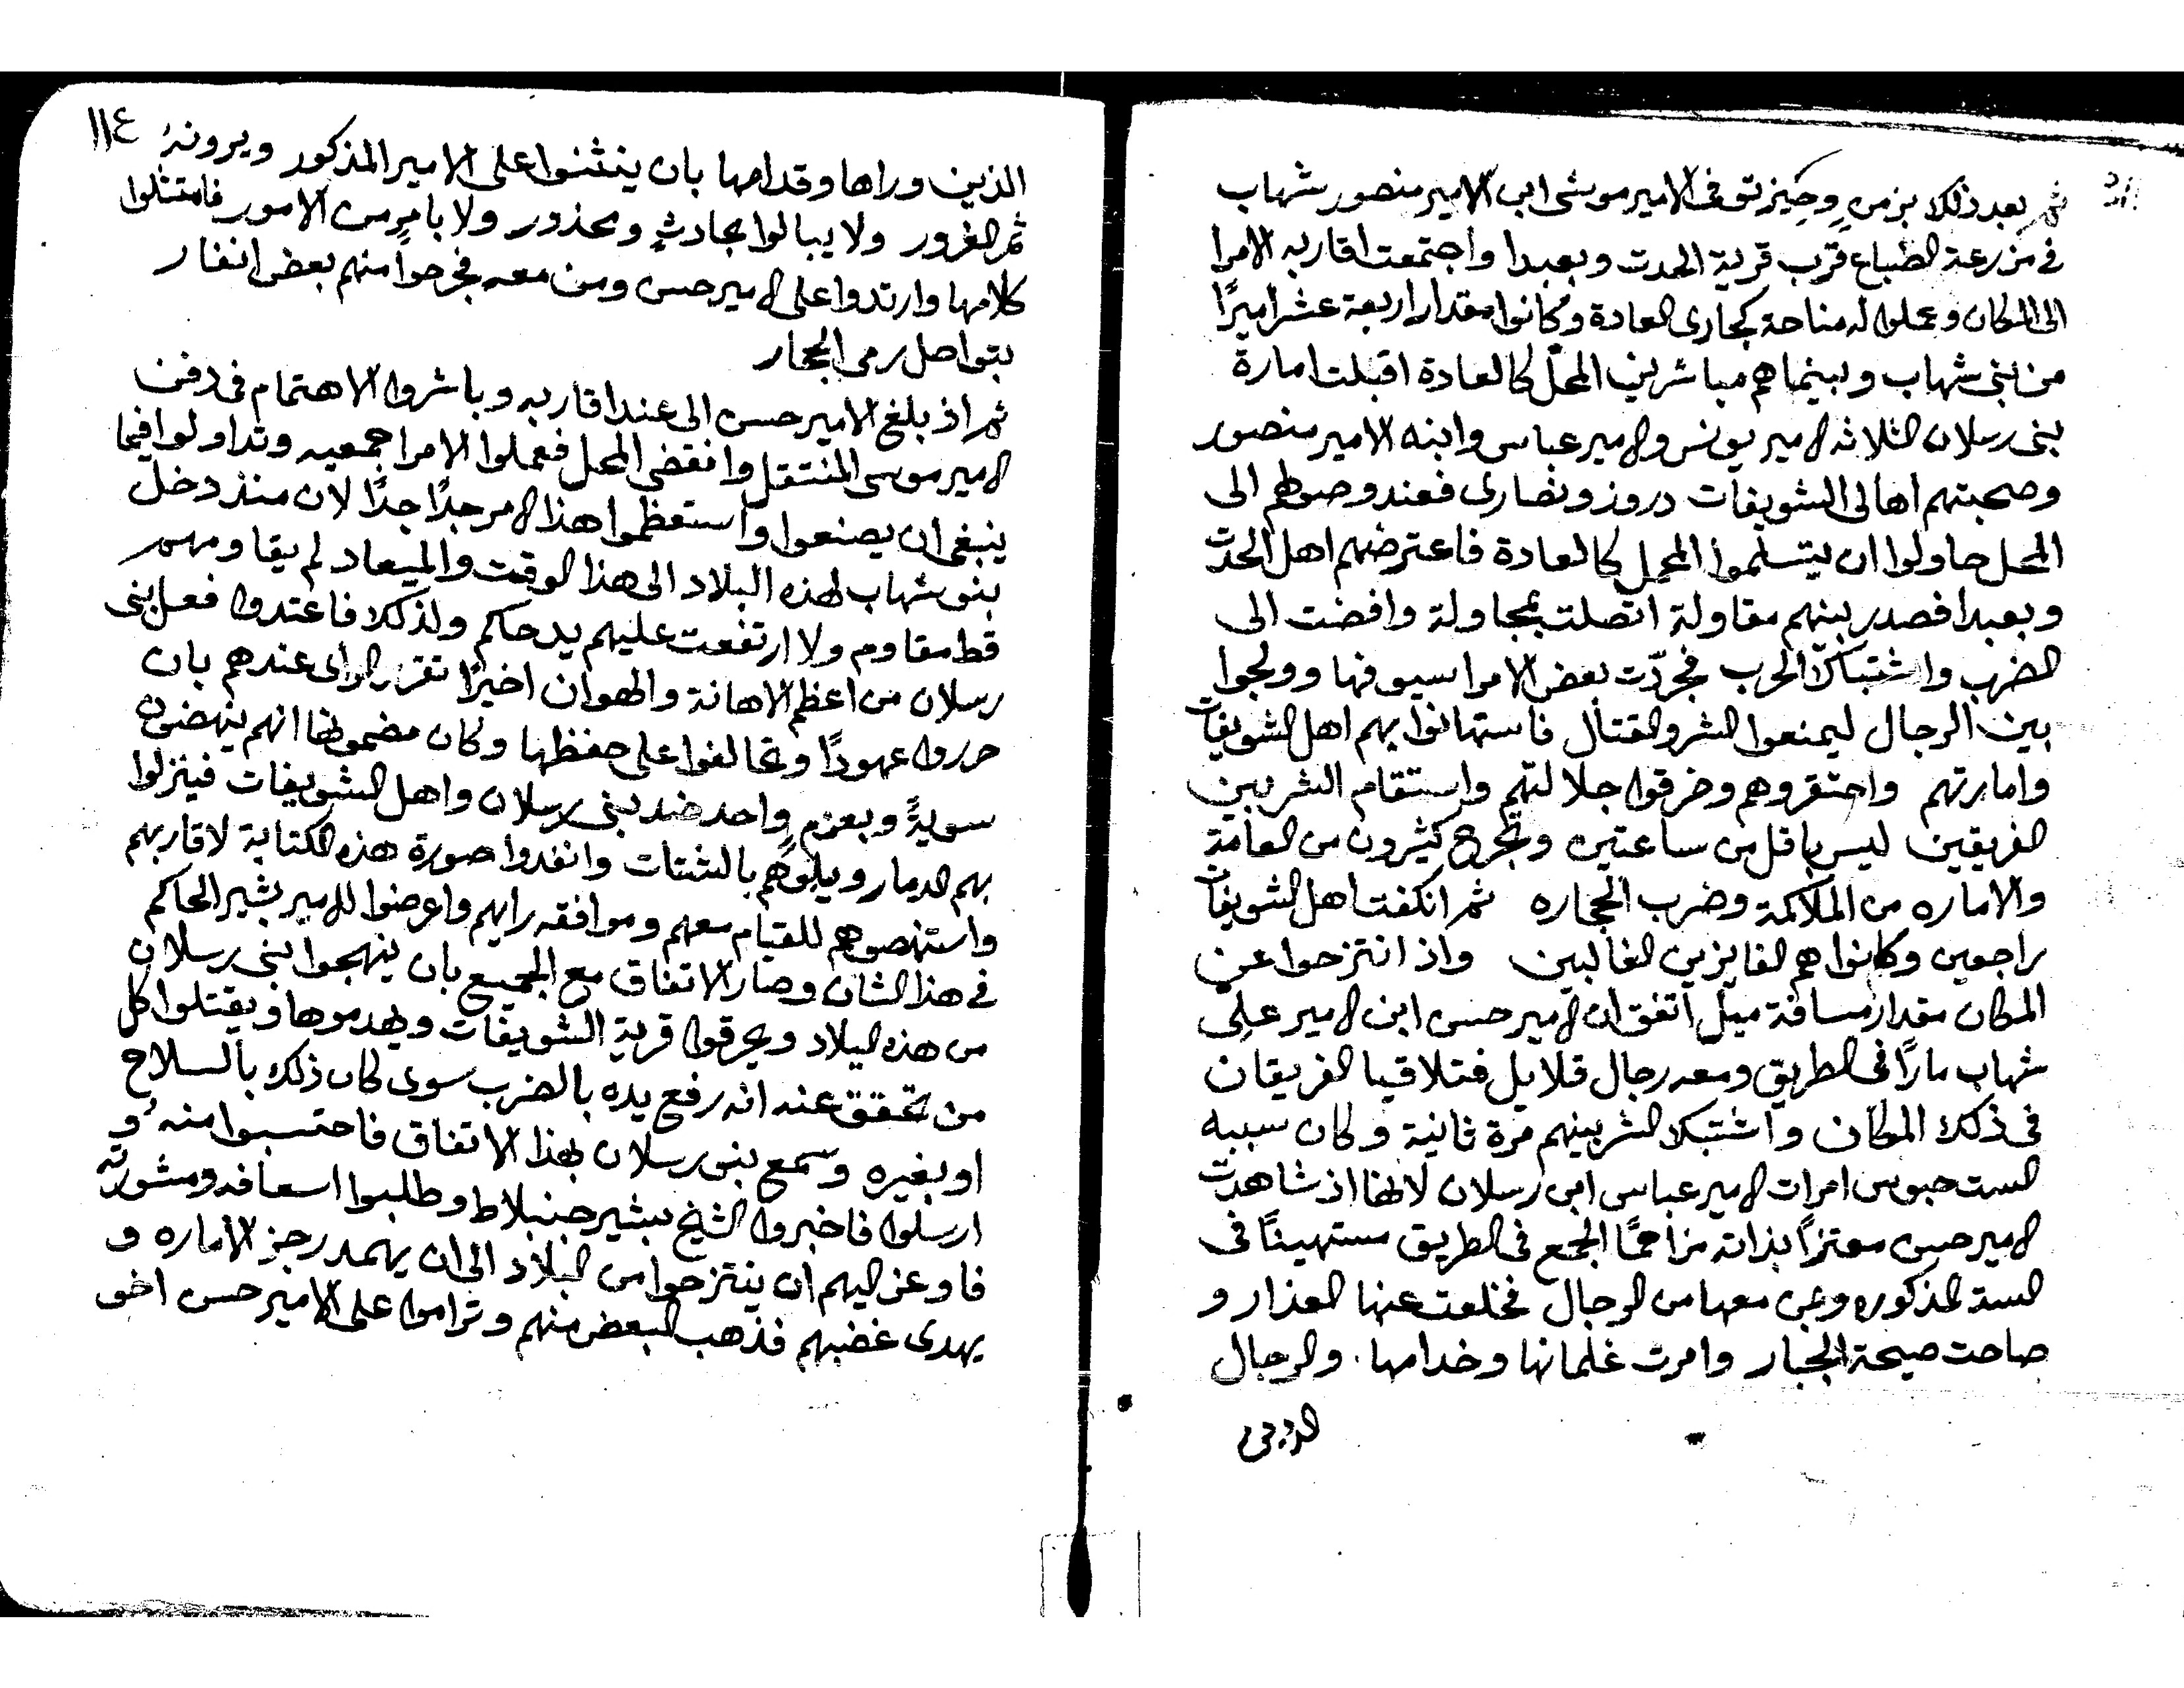 ثم بعد ذلك بزمن وجيز توفى الامير موسى ابن الامير منصور شهاب
في مزرعة الطباع قرب قرية الحدت وبعبدا واجتمعت اقاربه الامرا
الى المكان وعملوا له مناحة كجارى العادة وكانوا مقدار اربعة عشر اميرًا
من بنى شهاب وبينما هم مباشرين المحل كالعادة اقبلت امارة
بنى رسلان الثلاثه الامير يونس والامير عباس وابنه الامير منصور
وصحبتهم اهالى الشويفات دروز ونصارى فعند وصولهم الى
المحل حاولوا ان يتسلموا المحمل كالعادة فاعترضهم اهل الحدت
وبعبدا فصدر بينهم مقاولة اتصلت بمجاولة وافضت الى
الضرب واشتباك الحرب فجردّت بعض الامرا سيوفها وولجوا
بين الرجال ليمنعوا الشر والقتال فاستهانوا بهم اهل الشويفات
وامارتهم واحتقروهم وخرقوا جلالتهم واستقام الشر بين
الفريقين ليس باقل من ساعتين وتجرح كثيرون من العامة
والاماره من الملاكمة وضرب الحجاره ثم انكفت اهل الشويفات
راجعين وكانوا هم الفايزين الغالبين واذ انتزحوا عن
المكان مقدار مسافة ميل اتفق ان الامير حسن ابن الامير على
شهاب مارًا فى الطريق ومعه رجال قلايل فتلاقيا الفريقان
فى ذلك المكان واشتبك الشر بينهم مرة ثانية وكان سببه
الست حبوس امرات الامير عباس ابن رسلان لانها اذ شاهدت
الامير حسن معتزًا بذاته مزاحمًا الجمع فى الطريق مستهينًا فى
الست المذكوره وبمن معها من الرجال فخلعت عنها العذار و
صاحت صيحة الجبار وامرت غلمانها وخدامها. والرجال
الذين
١١٤
الذين وراها وقدامها بان ينثنوا على الامير المذكور ويرونهُ
ثمر الغرور ولا يبالوا بحادثٍ ومحذور ولا بامرٍ من الامور فامتثلوا
كلامها وارتدوا على الامير حسن ومن معه فجرحوا منهم بعض انفار
بتواصل رمى الحجار
ثم اذ بلغ الامير حسن الى عند اقاربه وباشروا الاهتمام فى دفن
الامير موسى المنتقل وانقضى المحل فعملوا الامرا جمعيه وتداولوا فيما
ينبغى ان يصنعوا واستعظموا هذا الامر جدًا جدًا لان منذ دخل
بنو شهاب لهذه البلاد الى هذا الوقت والميعاد لم يقاومهم
قط مقاوم ولا ارتفعت عليهم يد حاكم ولذلك فاعتدوا فعل بنى
رسلان من اعظم الاهانة والهوان اخيرًا تقرر الراى عندهم بان
حرروا عهودًا وتحالفوا على حفظها وكان مضمونها انهم ينهضون
سويةً وبعزمٍ واحد ضد بنى رسلان واهل الشويفات فينزلوا
بهم الدمار ويبلوهم بالشتات وانفدوا صورة هذه الكتابة لاقاربهم
واستنهضوهم للقيام معهم وموافقه رايهم واعرضوا للامير بشير الحاكم
في هذا الشان وصار الاتفاق مع الجميع بان ينهجوا بنى رسلان
من هذه البلاد ويحرقوا قرية الشويفات ويهدموها ويقتلوا كل
من تحقق عنه انه رفع يده بالضرب سوى كان ذلك بالسلاح
او بغيره وسمع بنو رسلان بهذا الاتفاق فاحتسبوا منهُ و
ارسلوا فاخبروا الشيخ بشير جنبلاط وطلبوا اسعافه ومشورته
فاوعز اليهم ان ينتزحوا من البلاد الى ان يهمد رجز الاماره و
يهدى غضبهم فذهب البعض منهم وتراموا على الامير حسن اخو